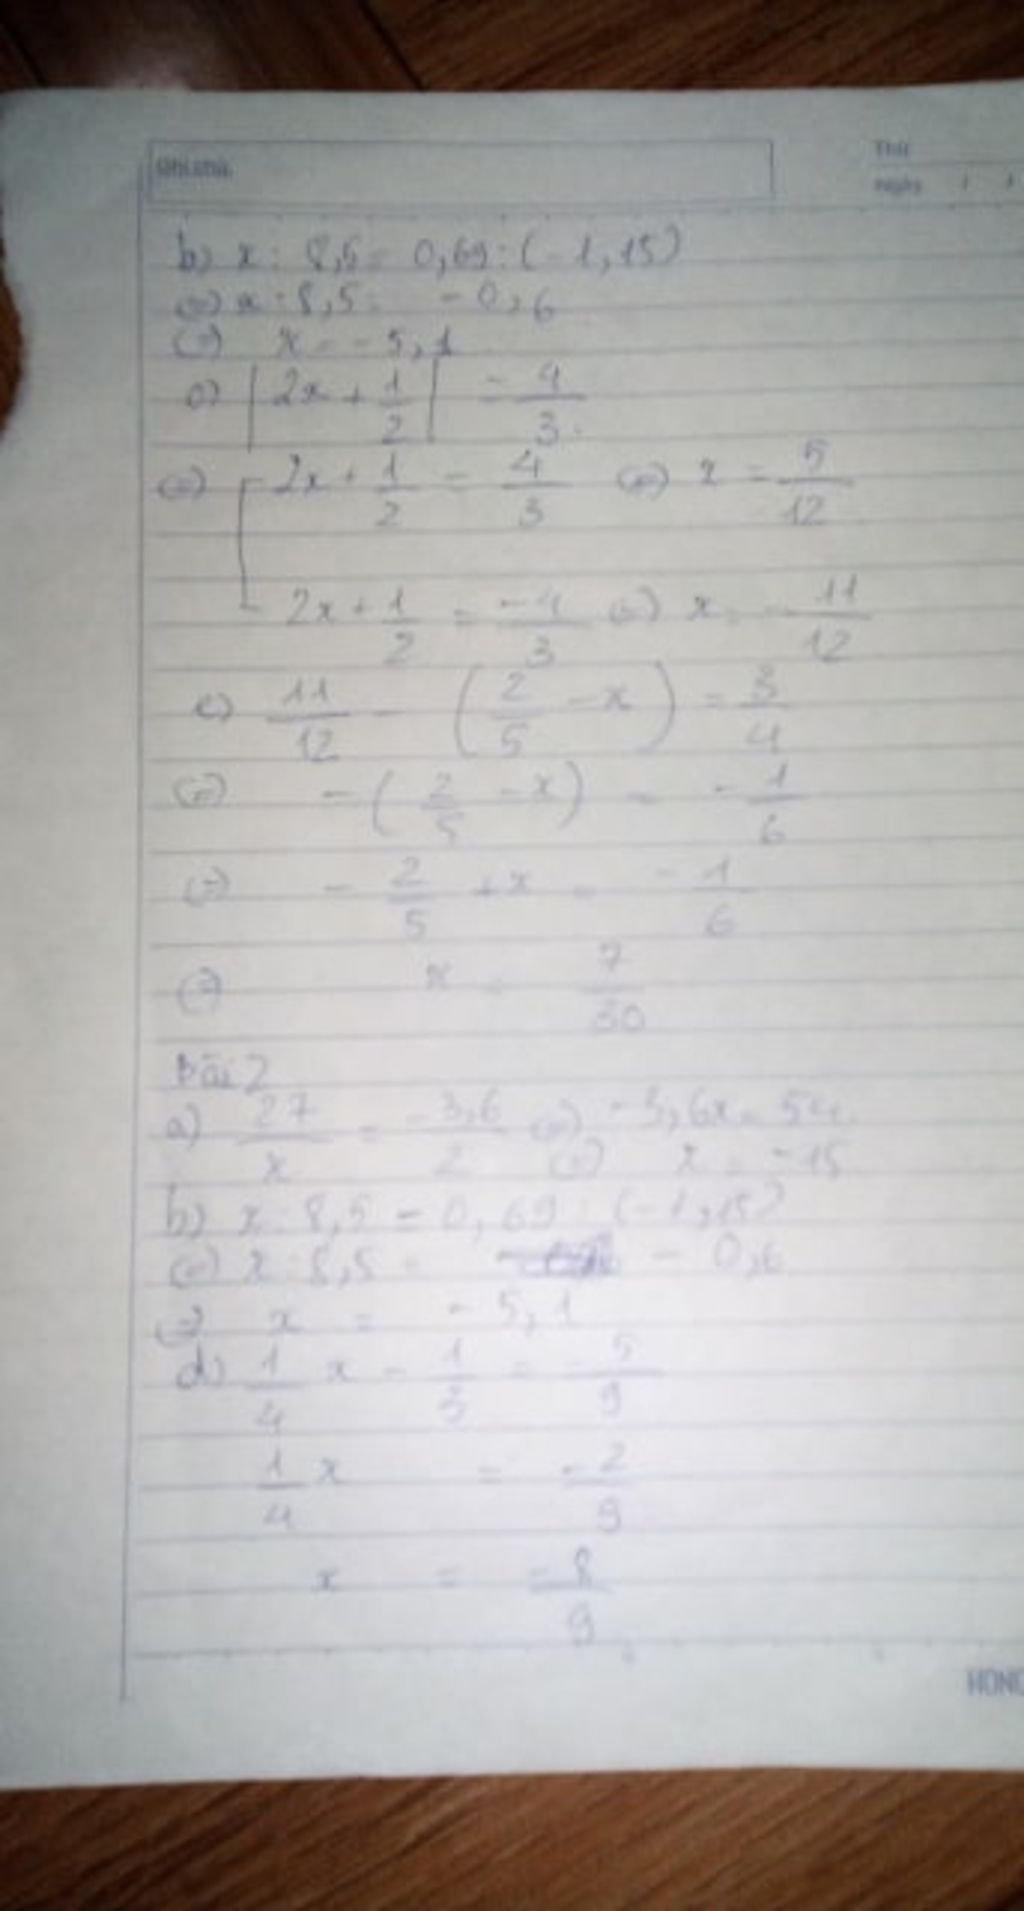 Ghi chú
Thứ
Ngày / /
b) x : 8,5 = 0,69 : (-1,15)
(=) x : 8,5 = -0,6
(=) x = -5,1
c) |2x + 1/2| = 4/3
(=) [ 2x + 1/2 = 4/3 (=) x = 5/12
2x + 1/2 = -4/3 (=) x = -11/12
c) 11/12 - (2/5 - x) = 3/4
(=) -(2/5 - x) = -1/6
(=) -2/5 + x = -1/6
(=) x = 7/30
Bài 2
a) 27/x = -3,6/2 (=) -3,6x = 54
(=) x = -15
b) x : 8,5 = 0,69 : (-1,15)
(=) x : 8,5 = -0,6
(=) x = -5,1
d) 1/4 x - 1/3 = -5/9
1/4 x = -2/9
x = -8/9